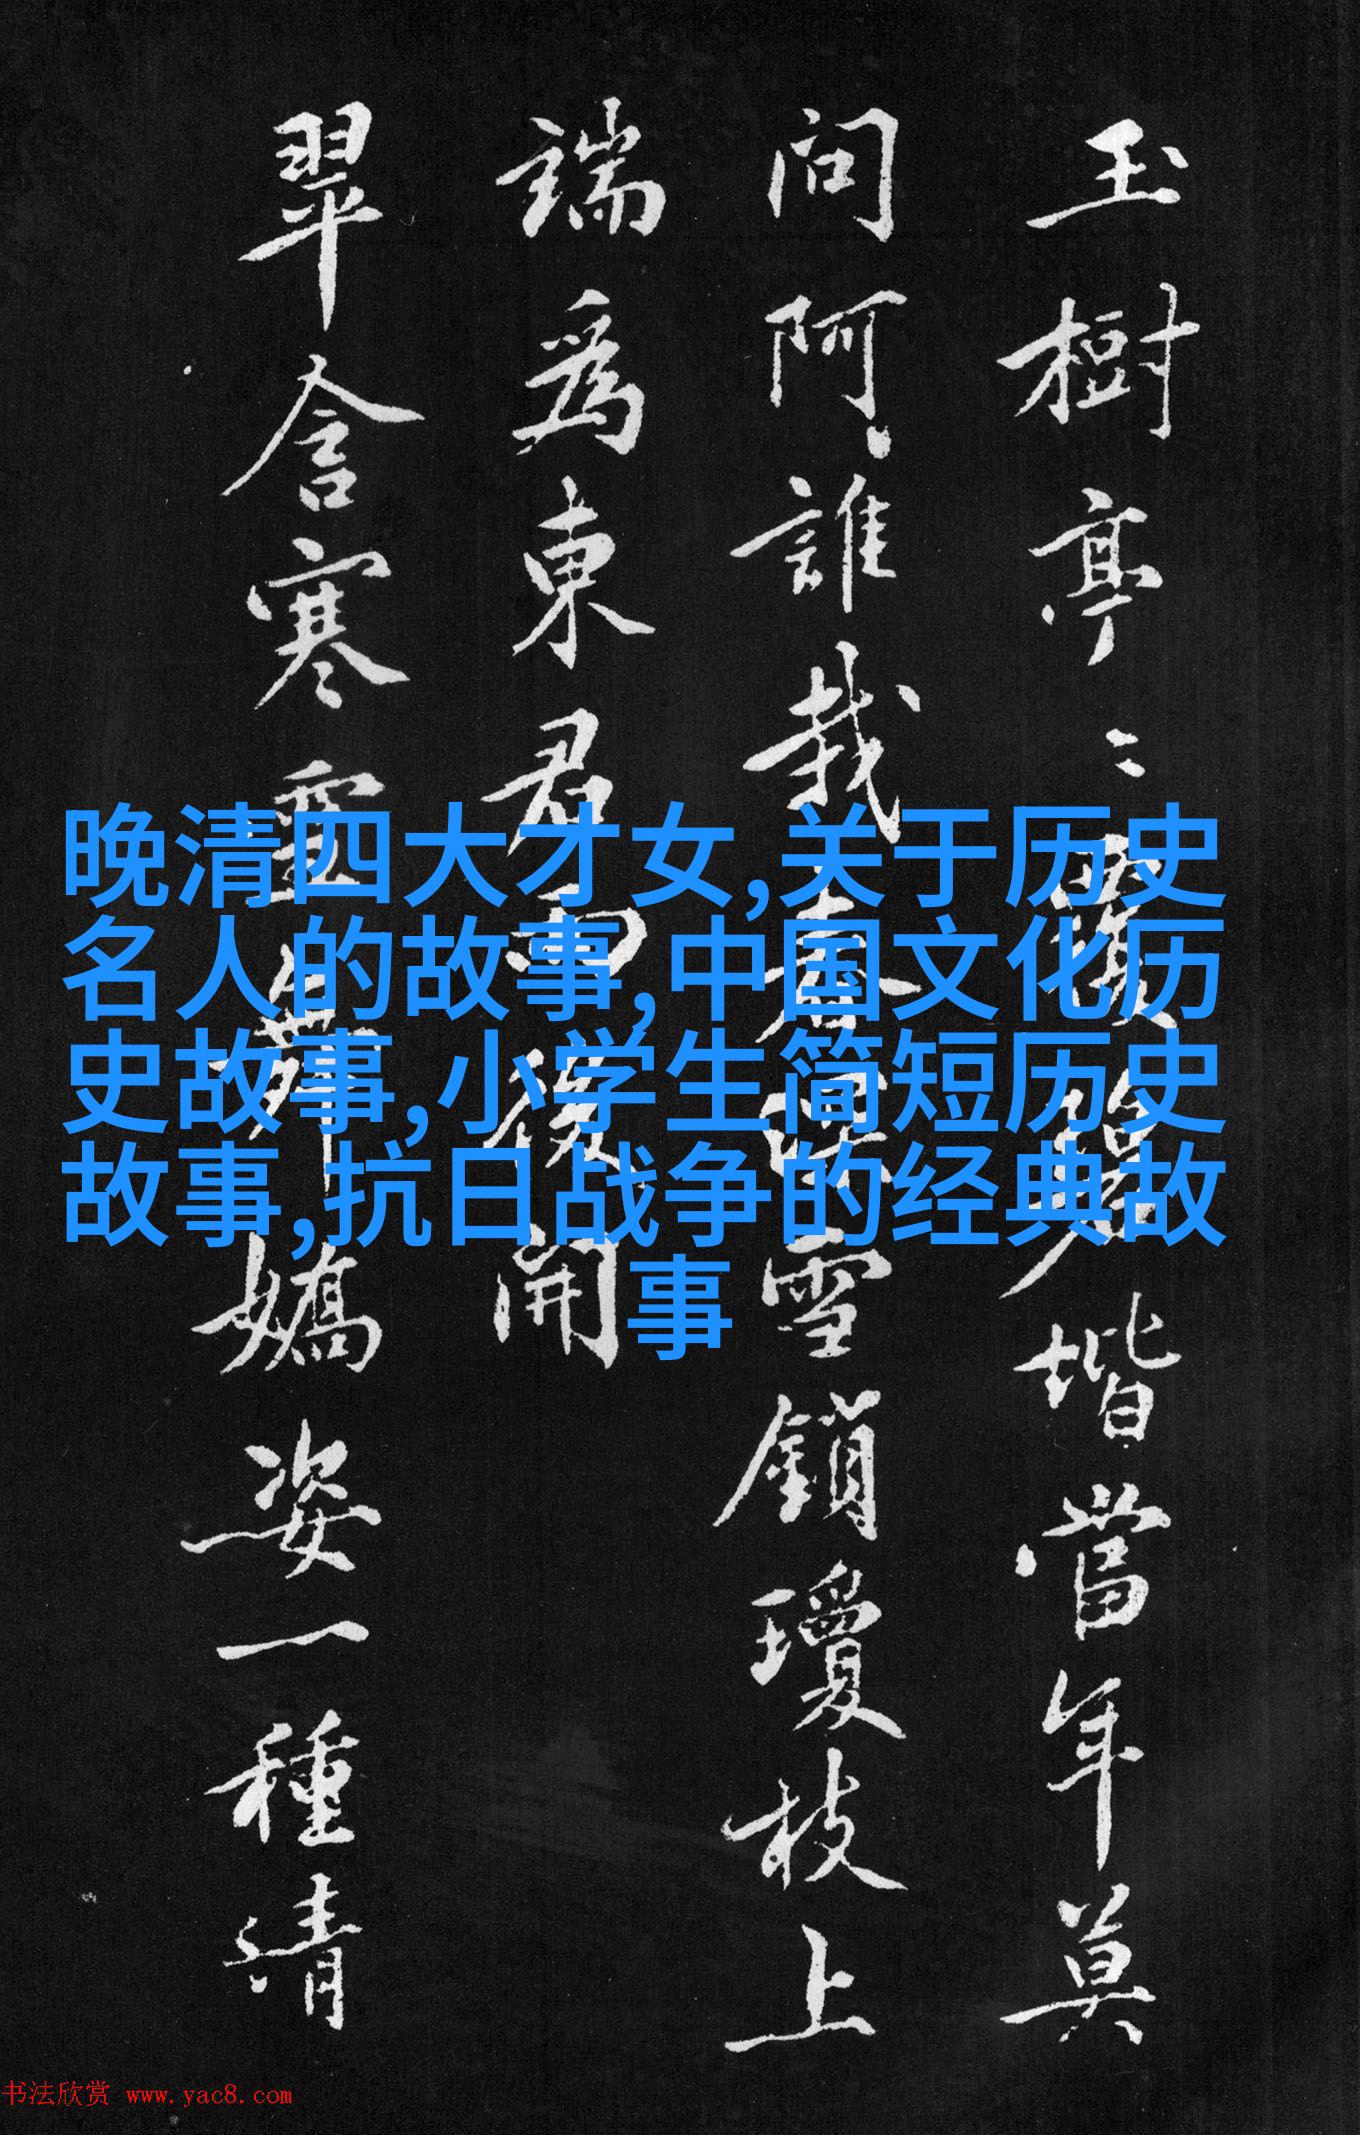 玉樹亭〻
階當年莫
問阿誰栽
雪鎖瓊枝上
端為東君
後開
翠含寒
嬌姿一種清
晚清四大才女,关于历史
名人的故事,中国文化历
史故事,小学生简短历史
故事,抗日战争的经典故
事
书法欣赏 www.yac8.com